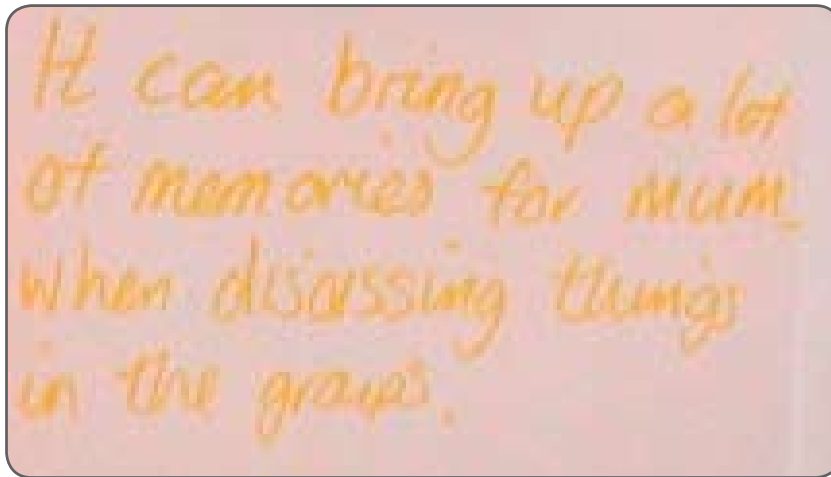 It can bring up a lot
of memories for mum
when discussing things
in the groups.